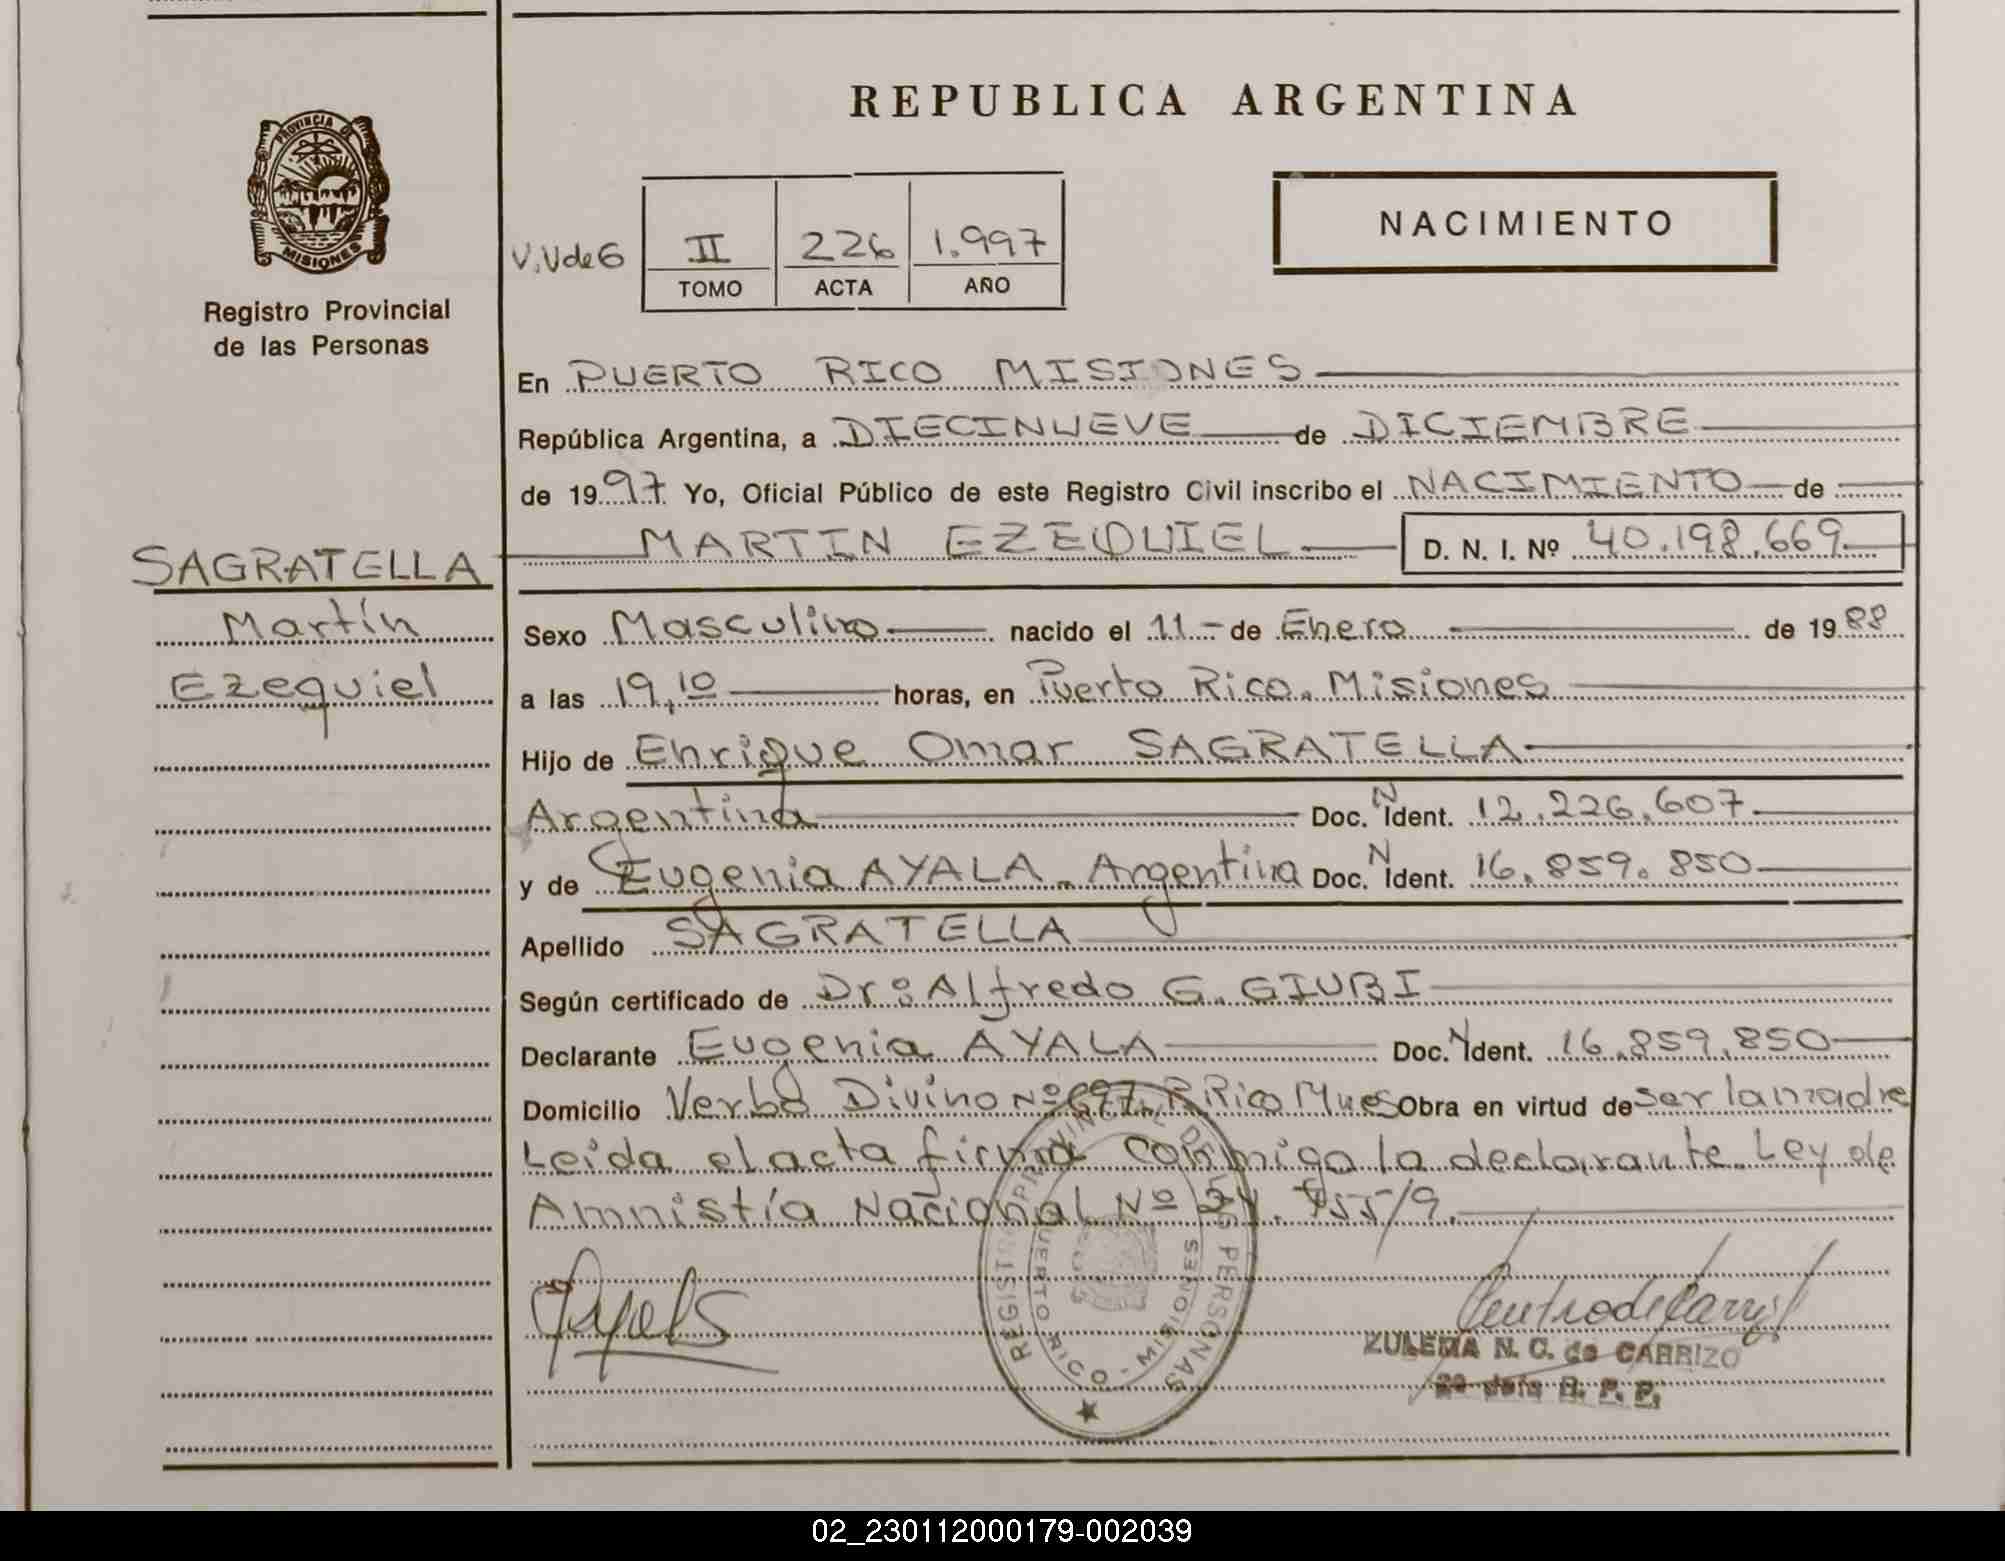 REPUBLICA ARGENTINA
PROVINCIA DE
MISIONES
Registro Provincial
de las Personas
NACIMIENTO
V.Vde6
II 226 1.997
TOMO ACTA AÑO
En PUERTO RICO MISIONES
República Argentina, a DIECINUEVE de DICIEMBRE
de 1997. Yo, Oficial Público de este Registro Civil inscribo el NACIMIENTO de
SAGRATELLA
Martín
Ezequiel
MARTIN EZEQUIEL D. N. I. Nº 40.198.669
Sexo Masculino nacido el 11 - de Enero de 1988
a las 19,10 horas, en Puerto Rico. Misiones
Hijo de Enrique Omar SAGRATELLA
Argentina Doc. N Ident. 12.226.607
y de Eugenia AYALA. Argentina Doc. N Ident. 16.859.850
Apellido SAGRATELLA
Según certificado de Dr: Alfredo G. GIUBI
Declarante Eugenia AYALA Doc. N Ident. 16.859.850
Domicilio Verbo Divino Nº 697. P.Rico Mnes Obra en virtud de ser la madre
Leída el acta firma conmigo la declarante. Ley de
Amnistía Nacional Nº 24. 755/9.
REGISTRO PROVINCIAL DE LAS PERSONAS
PUERTO RICO - MISIONES
ZULEMA N. C. de CARRIZO
R. P. P.
02_230112000179-002039